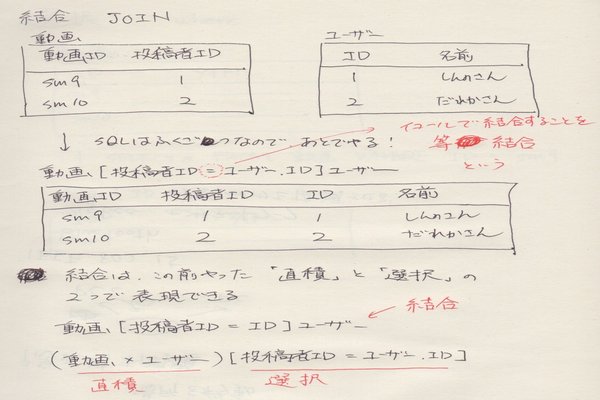 結合 JOIN
動画
動画ID 投稿者ID
sm9 1
sm10 2
ユーザー
ID 名前
1 しんのさん
2 だれかさん
↓ SQLはふくざつなので あとでやる!
イコールで結合することを
等結合
という
動画[投稿者ID=ユーザー.ID]ユーザー
動画ID 投稿者ID ID 名前
sm9 1 1 しんのさん
sm10 2 2 だれかさん
結合は、この前やった「直積」と「選択」の
2つで表現できる
結合
動画[投稿者ID=ID]ユーザー
(動画×ユーザー)[投稿者ID=ユーザー.ID]
直積 選択